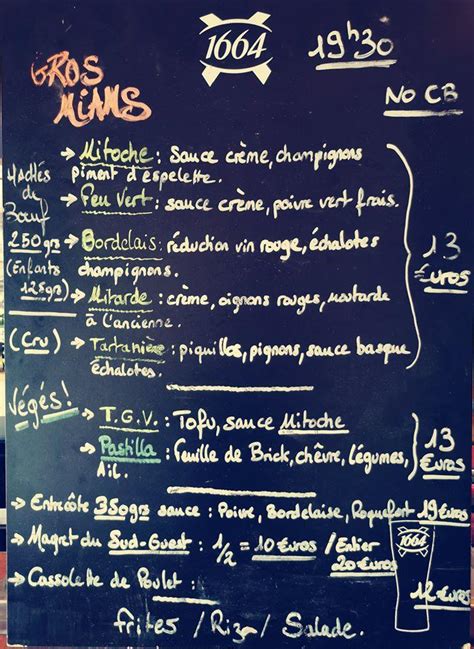 1664
19h30
GROS
MiAMS
NO CB
Hachés
de
Bœuf
250grs
(Enfants
125grs)
→ Mitoche : Sauce crème, champignons
piment d'espelette.
→ Feu Vert : sauce crème, poivre vert frais.
→ Bordelais : réduction vin rouge, échalotes
champignons.
→ Mitarde : crème, oignons rouges, moutarde
à l'ancienne.
(Cru) → Tartanière : piquillos, pignons, sauce basque
échalotes.
13
€uros
Végés !
→ T.G.V. : Tofu, sauce Mitoche
→ Pastilla : Feuille de Brick, chèvre, légumes,
Ail.
13
€uros
→ Entrecôte 350grs sauce : Poivre, Bordelaise, Roquefort 19€uros
→ Magret du Sud-Ouest : 1/2 = 10€uros / Entier
20€uros
→ Cassolette de Poulet : 12€uros
1664
frites / Riz / Salade.